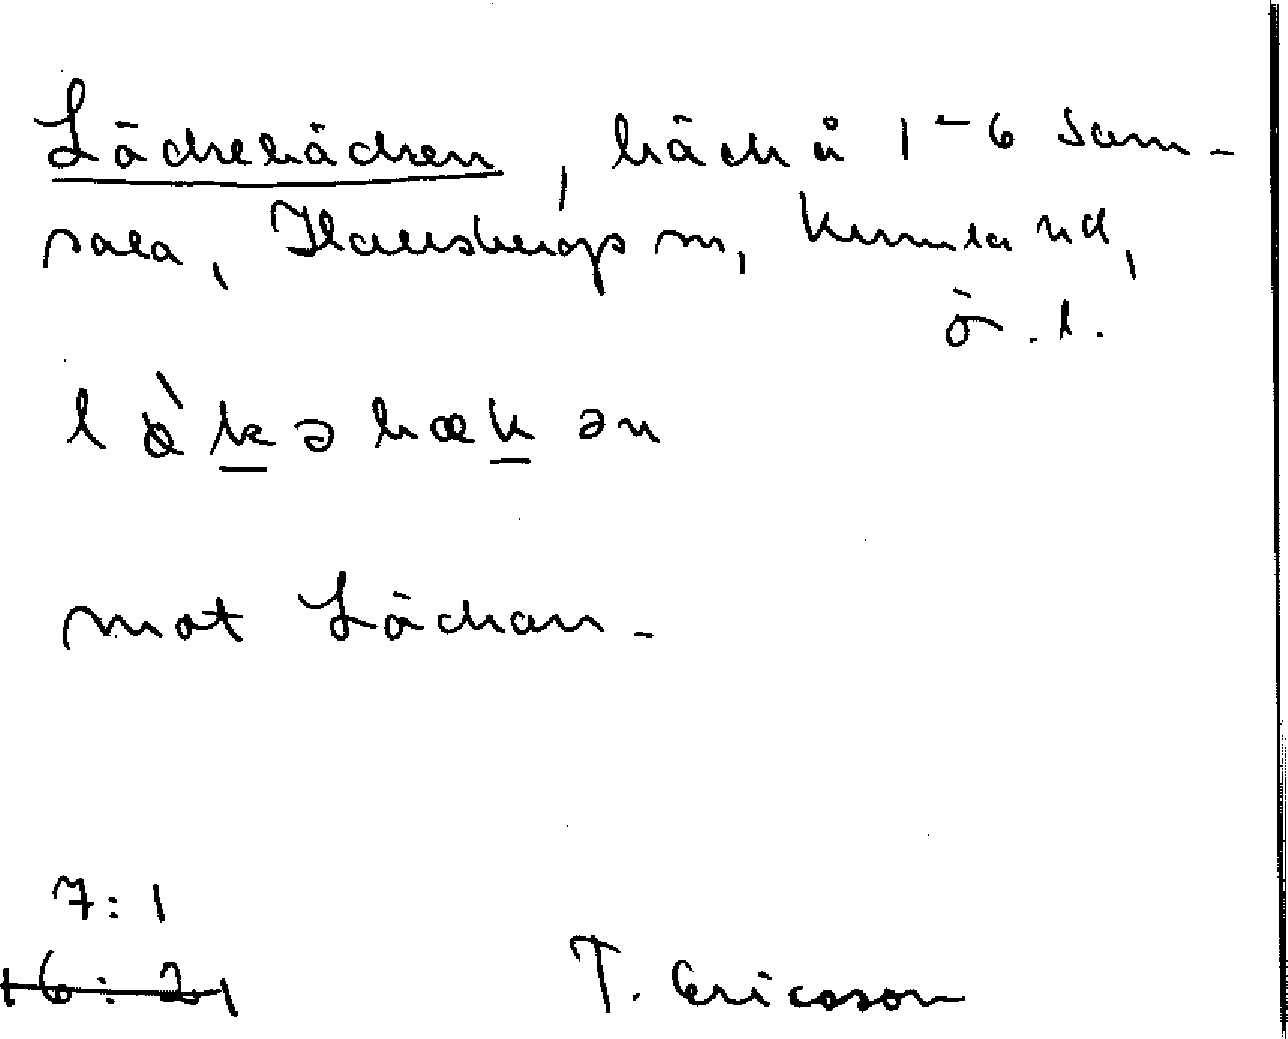 Läckebäcken, bäck å 1-6 Sam-
sala, Hallsbergs sn, Kumla hd,
ö. l.
l ò k ə b æ k ə n
mot Läckan-
7:1
16:21
T. Ericsson